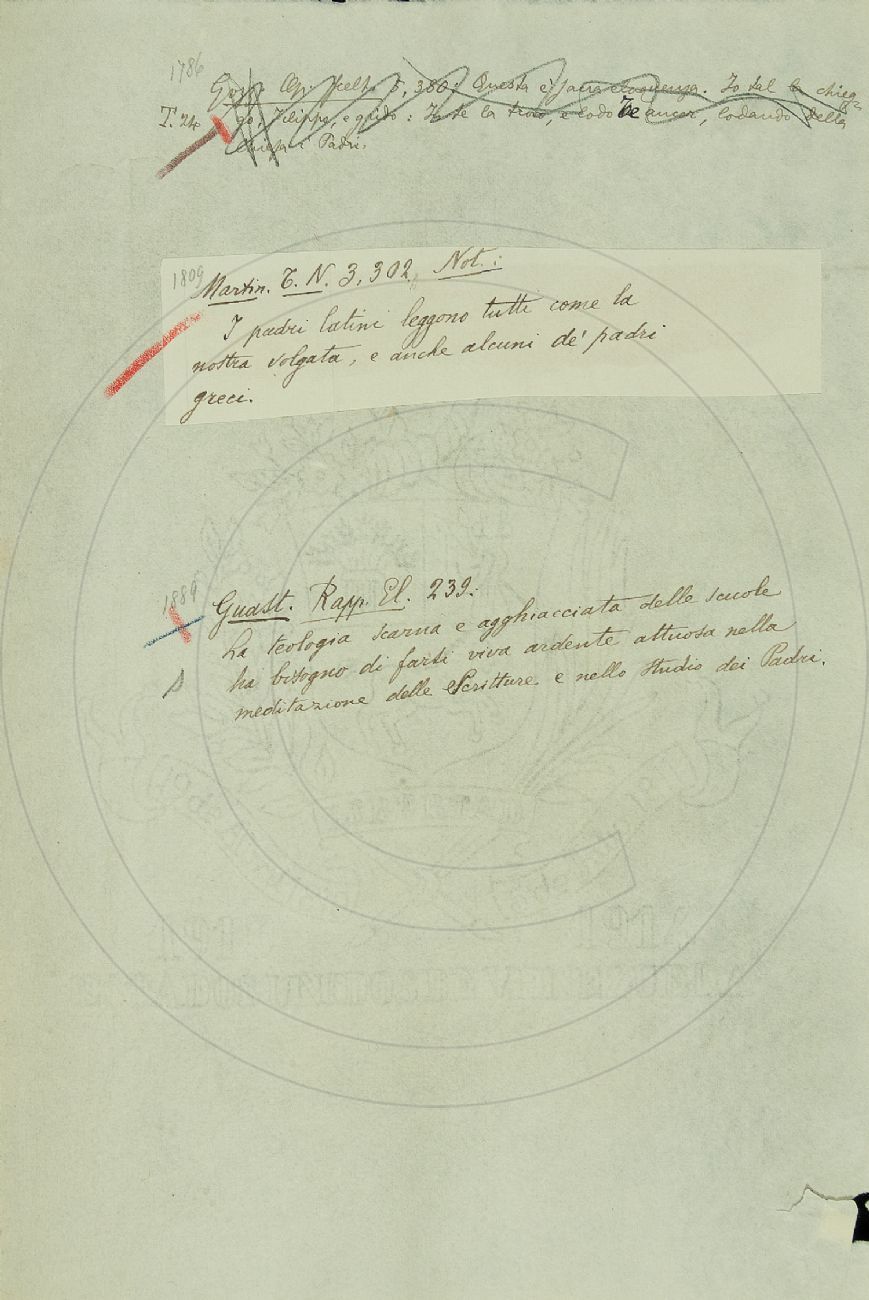 1786
Gozz. Op. scelte 5, 380: Questa è sacra eloquenza. Io tal la chieg-
T. 24 go, Filippo, e grido: In te la trovo, e lodo Te ancor, lodando della
Chiesa i Padri.
1809
Martin. T. N. 3, 302. Not.:
I padri latini leggono tutti come la
nostra volgata, e anche alcuni de' padri
greci.
Guast. Rapp. El. 239:
La teologia scarna e agghiacciata delle scuole
ha bisogno di farsi viva ardente attuosa nella
meditazione delle Scritture e nello studio dei Padri.